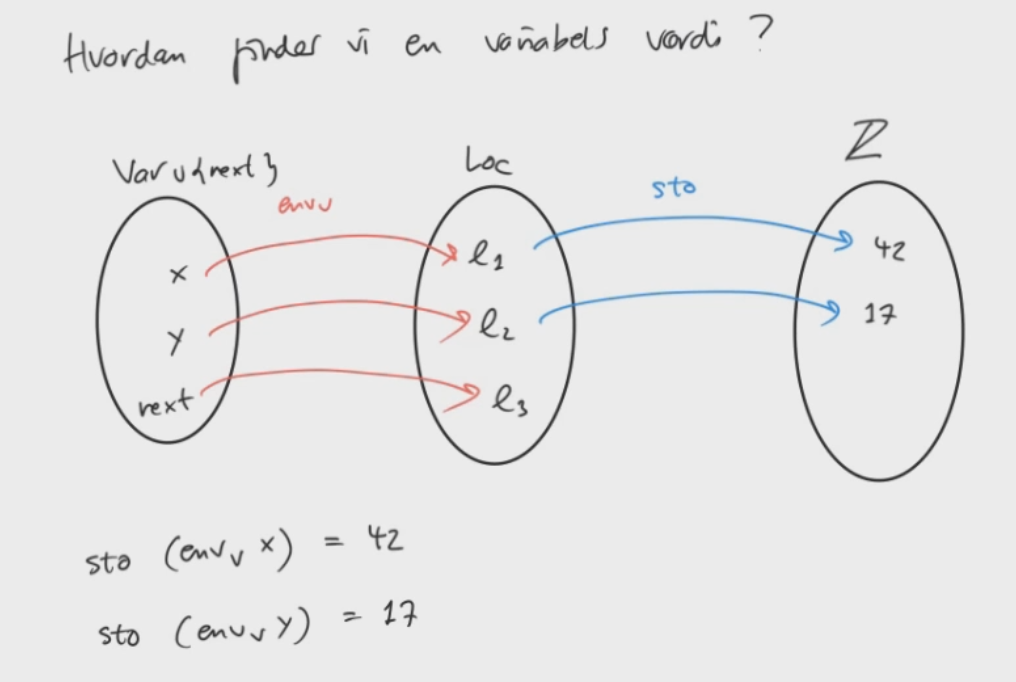 Hvordan finder vi en variabels værdi ?
Var ∪ {next} Loc ℤ
env_v sto
x l₁ 42
y l₂ 17
next l₃
sto (env_v x) = 42
sto (env_v y) = 17